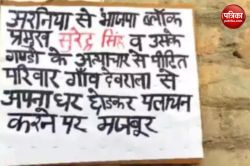 पत्रिका
अरनिया से भाजपा ब्लॉक
प्रमुख सुरेन्द्र सिंह व उसके
गुण्डों के अत्याचार से पीड़ित
परिवार गाँव देवराला से
अपना घर छोड़कर पलायन
करने पर मजबूर